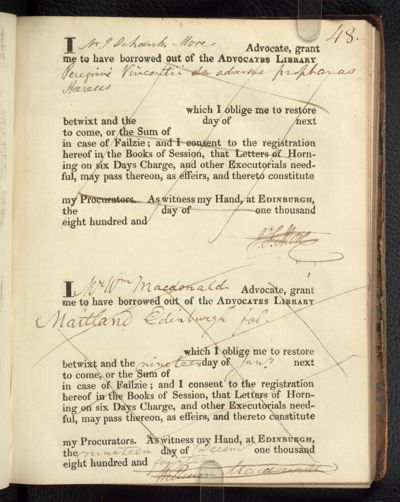 48.
I Mr J. Schank More Advocate, grant
me to have borrowed out of the ADVOCATES LIBRARY
Peregrini Vincentii adversus prophanas
Hereses
which I oblige me to restore
betwixt and the day of next
to come, or the Sum of
in case of Failzie; and I consent to the registration
hereof in the Books of Session, that Letters of Horn-
ing on six Days Charge, and other Executorials need-
ful, may pass thereon, as effeirs, and thereto constitute
my Procurators. As witness my Hand, at EDINBURGH,
the day of one thousand
eight hundred and
J. S. More
I Mr Wm Macdonald Advocate, grant
me to have borrowed out of the ADVOCATES LIBRARY
Maitland Edinburgh fol.
which I oblige me to restore
betwixt and the nineteen day of Jany next
to come, or the Sum of
in case of Failzie; and I consent to the registration
hereof in the Books of Session, that Letters of Horn-
ing on six Days Charge, and other Executorials need-
ful, may pass thereon, as effeirs, and thereto constitute
my Procurators. As witness my Hand, at EDINBURGH,
the nineteen day of Decem one thousand
eight hundred and
William Macdonald